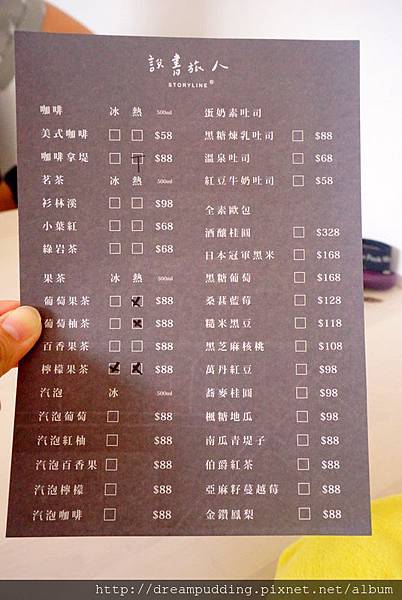 說書旅人
STORYLINE®
咖啡 冰 熱 500ml
美式咖啡 $58
咖啡拿堤 $88
茗茶 冰 熱 500ml
衫林溪 $98
小葉紅 $68
綠岩茶 $68
果茶 冰 熱 500ml
葡萄果茶 $88
葡萄柚茶 $88
百香果茶 $88
檸檬果茶 $88
汽泡 冰 500ml
汽泡葡萄 $88
汽泡紅柚 $88
汽泡百香果 $88
汽泡檸檬 $88
汽泡咖啡 $88
蛋奶素吐司
黑糖煉乳吐司 $88
溫泉吐司 $68
紅豆牛奶吐司 $58
全素歐包
酒釀桂圓 $328
日本冠軍黑米 $168
黑糖葡萄 $168
桑葚藍莓 $128
糙米黑豆 $118
黑芝麻核桃 $108
萬丹紅豆 $98
蕎麥桂圓 $98
楓糖地瓜 $98
南瓜青堤子 $88
伯爵紅茶 $88
亞麻籽蔓越莓 $88
金鑽鳳梨 $88
http://dreampudding.pixnet.net/album